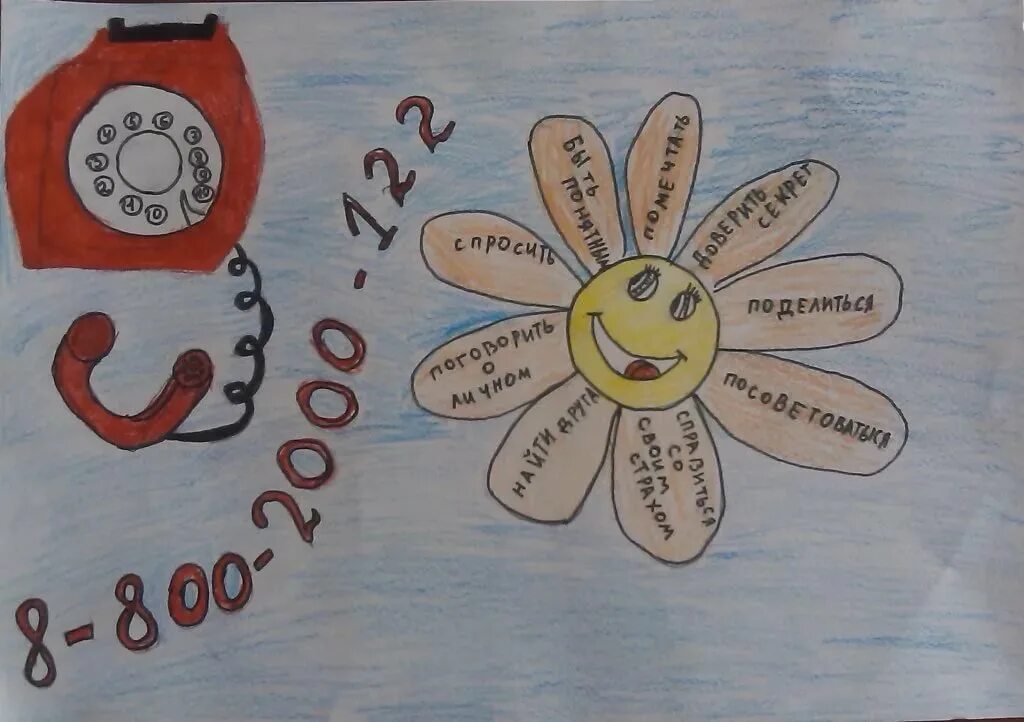 8-800-2000-122
СПРОСИТЬ
БЫТЬ
ПОНЯТНЫМ
ПОМЕЧТАТЬ
ДОВЕРИТЬ
СЕКРЕТ
ПОДЕЛИТЬСЯ
ПОСОВЕТОВАТЬСЯ
СПРАВИТЬСЯ
СО
СВОИМ
СТРАХОМ
НАЙТИ ДРУГА
ПОГОВОРИТЬ
О
ЛИЧНОМ